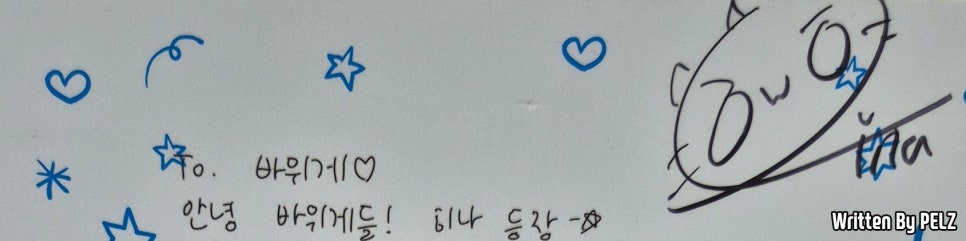 To. 바위게♡
안녕 바위게들! 히나 등장-☆
ina
Written By PELZ